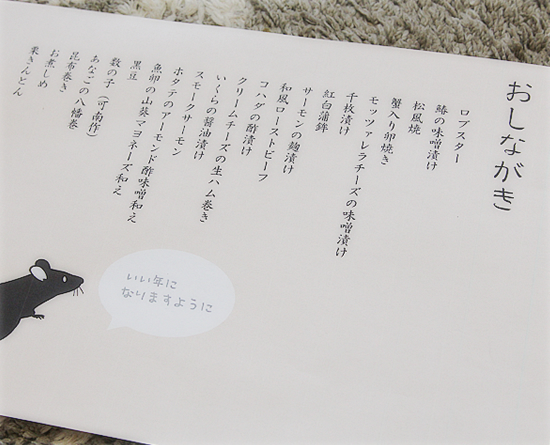 おしながき
ロブスター
鰆の味噌漬け
松風焼
蟹入り卵焼き
モッツァレラチーズの味噌漬け
千枚漬け
紅白蒲鉾
サーモンの麹漬け
和風ローストビーフ
コハダの酢漬け
クリームチーズの生ハム巻き
いくらの醤油漬け
スモークサーモン
ホタテのアーモンド酢味噌和え
魚卵の山葵マヨネーズ和え
黒豆
数の子（可南作）
あなごの八幡巻
昆布巻き
お煮しめ
栗きんとん
いい年に
なりますように